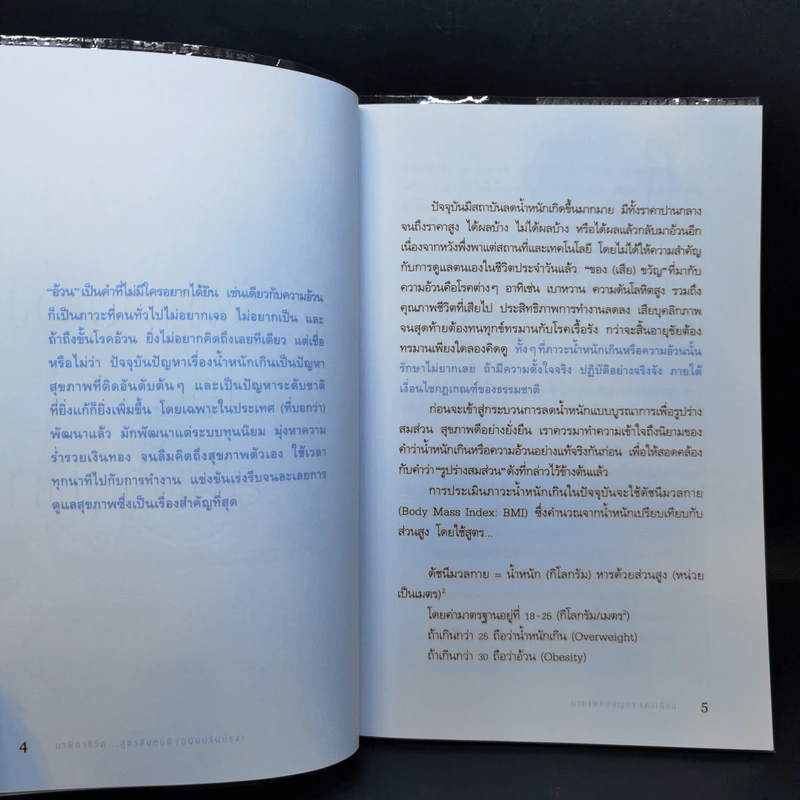 "อ้วน" เป็นคำที่ไม่มีใครอยากได้ยิน เช่นเดียวกับความอ้วน
ก็เป็นภาวะที่คนทั่วไปไม่อยากเจอ ไม่อยากเป็น และ
ถ้าถึงขั้นโรคอ้วน ยิ่งไม่อยากคิดถึงเลยทีเดียว แต่เชื่อ
หรือไม่ว่า ปัจจุบันปัญหาเรื่องน้ำหนักเกินเป็นปัญหา
สุขภาพที่ติดอันดับต้นๆ และเป็นปัญหาระดับชาติ
ที่ยิ่งแก้ก็ยิ่งเพิ่มขึ้น โดยเฉพาะในประเทศ (ที่บอกว่า)
พัฒนาแล้ว มักพัฒนาแต่ระบบทุนนิยม มุ่งหาความ
ร่ำรวยเงินทอง จนลืมคิดถึงสุขภาพตัวเอง ใช้เวลา
ทุกนาทีไปกับการทำงาน แข่งขันเร่งรีบจนละเลยการ
ดูแลสุขภาพซึ่งเป็นเรื่องสำคัญที่สุด
4
ปัจจุบันมีสถาบันลดน้ำหนักเกิดขึ้นมากมาย มีทั้งราคาปานกลาง
จนถึงราคาสูง ได้ผลบ้าง ไม่ได้ผลบ้าง หรือได้ผลแล้วกลับมาอ้วนอีก
เนื่องจากหวังพึ่งพาแต่สถานที่และเทคโนโลยี โดยไม่ได้ให้ความสำคัญ
กับการดูแลตนเองในชีวิตประจำวันแล้ว "ของ (เสีย) ขวัญ" ที่มากับ
ความอ้วนคือโรคต่างๆ อาทิเช่น เบาหวาน ความดันโลหิตสูง รวมถึง
คุณภาพชีวิตที่เสียไป ประสิทธิภาพการทำงานลดลง เสียบุคลิกภาพ
จนสุดท้ายต้องทนทุกข์ทรมานกับโรคเรื้อรัง กว่าจะสิ้นอายุขัยต้อง
ทรมานเพียงใดลองคิดดู ทั้งๆ ที่ภาวะน้ำหนักเกินหรือความอ้วนนั้น
รักษาไม่ยากเลย ถ้ามีความตั้งใจจริง ปฏิบัติอย่างจริงจัง ภายใต้
เงื่อนไขกฎเกณฑ์ของธรรมชาติ
ก่อนจะเข้าสู่กระบวนการลดน้ำหนักแบบบูรณาการเพื่อรูปร่าง
สมส่วน สุขภาพดีอย่างยั่งยืน เราควรมาทำความเข้าใจถึงนิยามของ
คำว่าน้ำหนักเกินหรือความอ้วนอย่างแท้จริงกันก่อน เพื่อให้สอดคล้อง
กับคำว่า "รูปร่างสมส่วน" ดังที่กล่าวไว้ข้างต้นแล้ว
การประเมินภาวะน้ำหนักเกินในปัจจุบันจะใช้ดัชนีมวลกาย
(Body Mass Index: BMI) ซึ่งคำนวณจากน้ำหนักเปรียบเทียบกับ
ส่วนสูง โดยใช้สูตร...
ดัชนีมวลกาย = น้ำหนัก (กิโลกรัม) หารด้วยส่วนสูง (หน่วย
เป็นเมตร)²
โดยค่ามาตรฐานอยู่ที่ 18-25 (กิโลกรัม/เมตร²)
ถ้าเกินกว่า 25 ถือว่าน้ำหนักเกิน (Overweight)
ถ้าเกินกว่า 30 ถือว่าอ้วน (Obesity)
5